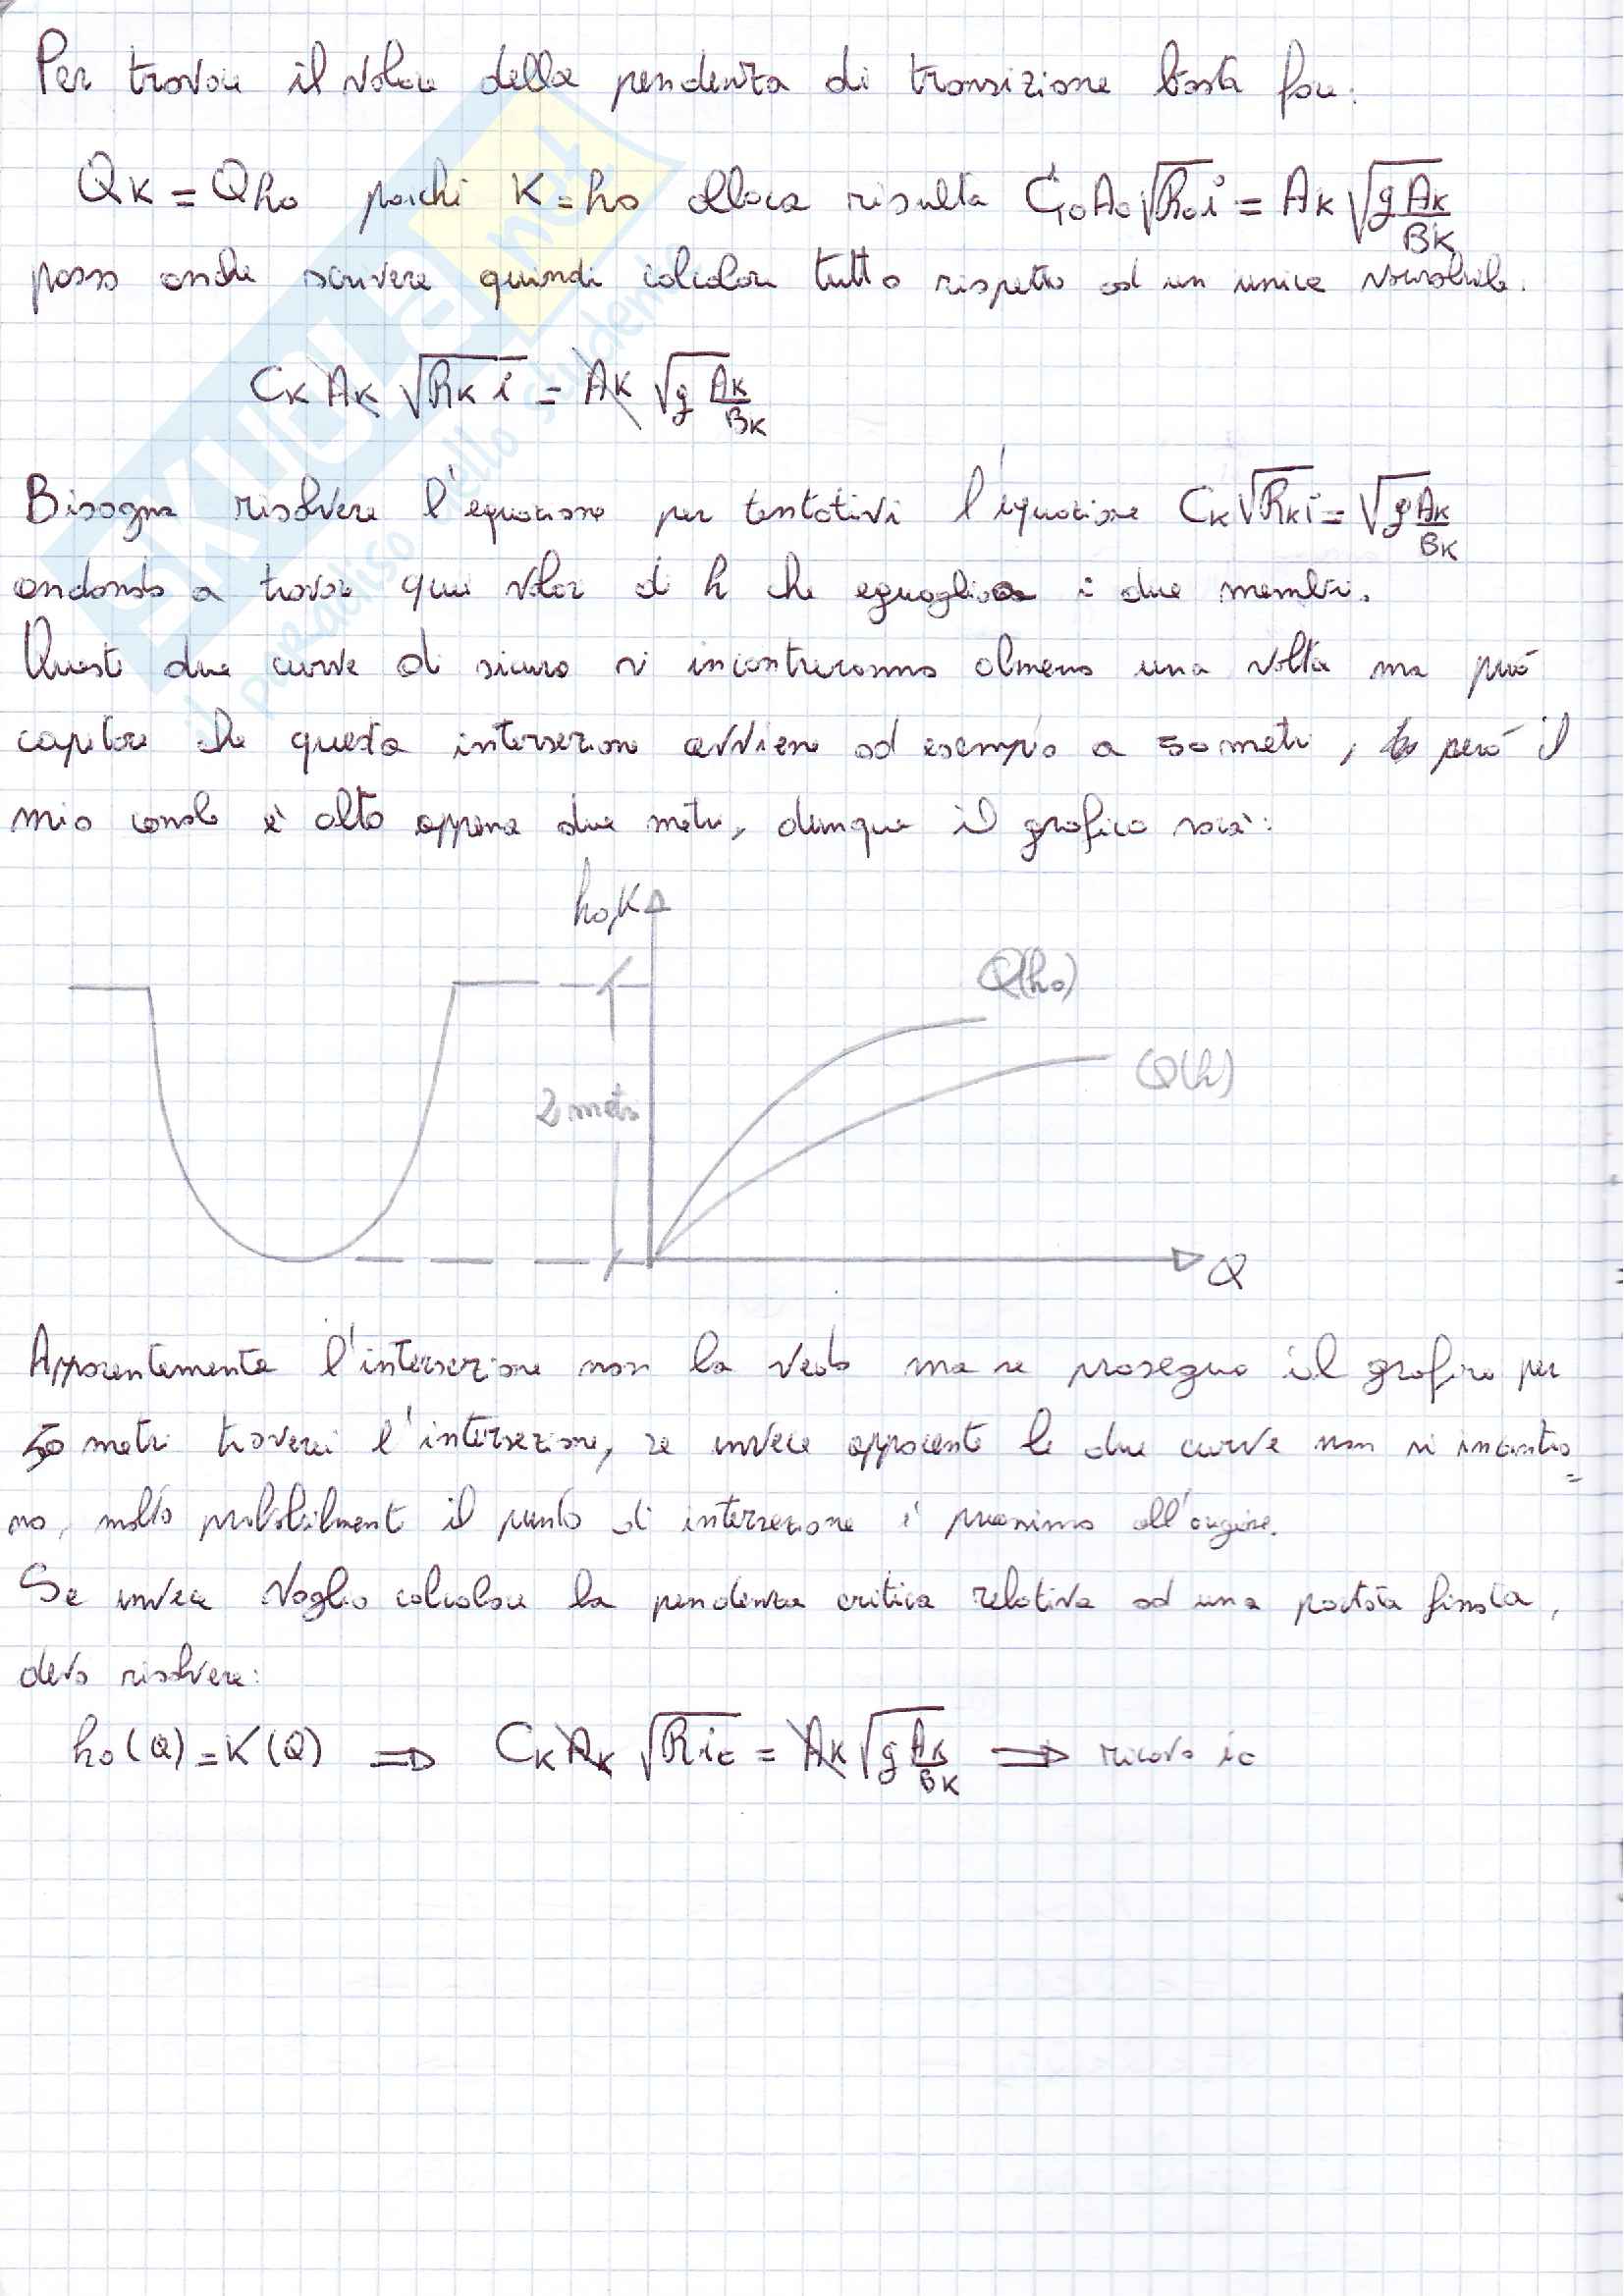 Per trovare il valore della pendenza di transizione basta fare:
QK = Qho poiché K=ho allora risulta C₀A₀√R₀i = AK √g AK/BK
posso anche scrivere quindi calcolare tutto rispetto ad un unica variabile.
CK AK √RK i = AK √g AK/BK
Bisogna risolvere l'equazione per tentativi l'equazione CK√RKi = √g AK/BK
andando a trovare quei valori di h che eguagliano i due membri.
Queste due curve di sicuro si incontreranno almeno una volta ma può
capitare che questa intersezione avviene ad esempio a 50 metri, però il
mio canale è alto appena due metri, dunque il grafico sarà:
ho,K
Q(ho)
Q(k)
2 metri
Q
Apparentemente l'intersezione non la vedo ma se proseguo il grafico per
50 metri troverei l'intersezione, se invece apparente le due curve non si incontra=
no, molto probabilmente il punto di intersezione è prossimo all'origine.
Se invece voglio calcolare la pendenza critica relativa ad una portata fissata,
devo risolvere:
ho(Q) = K(Q) ⇒ CK AK √R ic = AK √g AK/BK ⇒ ricavo ic
SKUOLA.net
il paradiso dello studente